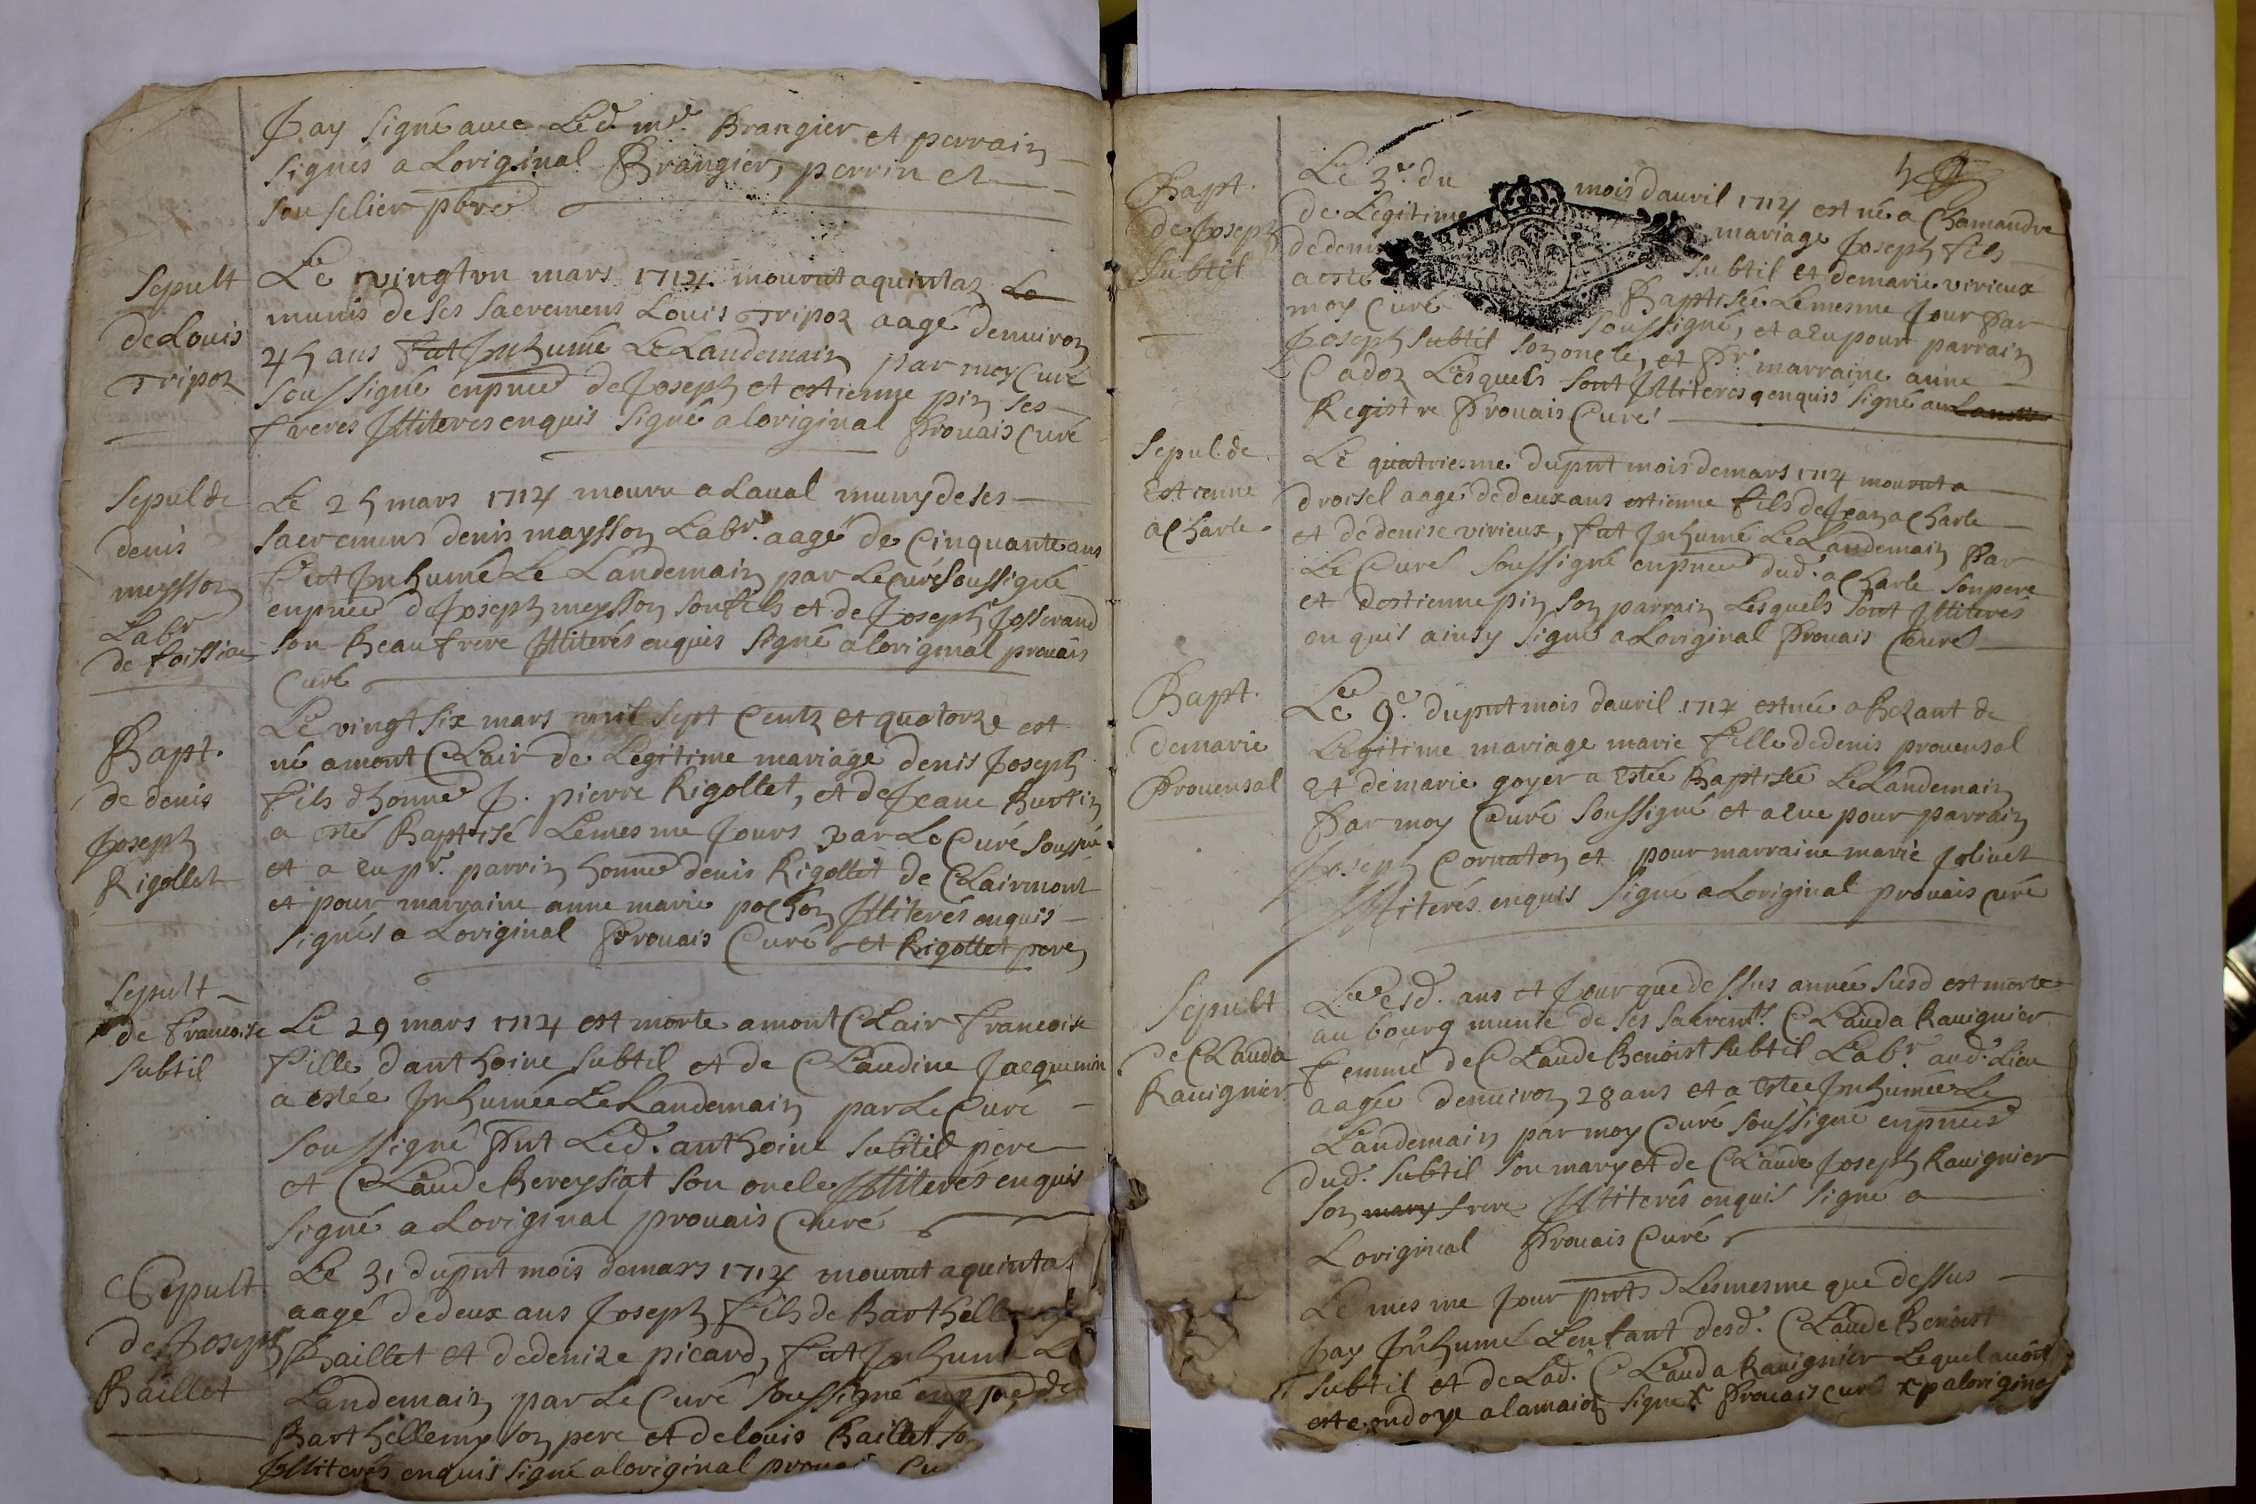 Jay signé avec Led. md. Brangier et perrain
signés a Loriginal Brangier, perrin et
souselier pbre
Sepult
de Louis
Tripoz
Le vingt un mars 1714 mourut a quintaz
munis de ses sacremens Louis Tripoz aagé denuiron
45 ans fut Jnhumé Le Landemain par moy Curé
soussigné enpnce de Joseph et estienne pin ses
freres Jlliteres enquis signé a loriginal Prouais Curé
Sepul de
denis
meysson
Labr
de foissiat
Le 25 mars 1714 mouru a Laual muny de ses
sacremens denis maysson Labr. aagé de Cinquante ans
fut Jnhumé Le Landemain par Le curé soussigné
enpnce de Joseph meysson son fils et de Joseph Josserand
son beau frere Jlliterés enquis signé a loriginal prouais
Curé
Bapt.
de denis
Joseph
Rigollet
Le vingt six mars mil sept Centz et quatorze est
né a mont Clair de Legitime mariage denis Joseph
fils dhonne J. pierre Rigollet, et de Jeane Burtin
a esté Baptisé Lemesme Jours par Le Curé soussné
et a eu pr. parrin honne denis Rigollet de Clairmont
et pour marraine anne marie pochon Jlliterés enquis
signés a Loriginal Prouais Curé et Rigollet pere
Sepult
de francoise
subtil
Le 29 mars 1714 est morte a mont Clair francoise
fille danthoine subtil et de Claudine Jacquemin
a estée Jnhumée Le Landemain par Le Curé
soussigné Pnt Led. anthoine subtil pere
et Claude Bereysiat son oncle Jlliterés enquis
signé a Loriginal prouais Curé
Sepult
de Joseph
Baillet
Le 31 dupnt mois de mars 1714 mourut a quintaz
aagé de deux ans Joseph fils de Barthellemy
Baillet et de denize picard, fut Jnhumé Le
Landemain par Le Curé soussigné en pnce de
Barthellemy son pere et de louis Baillet
Jlliterés enquis signé a loriginal
Bapt.
de Joseph
subtil
Le 3e. du mois dauril 1714 est né a Chamandre
de Legitime mariage Joseph fils
de denis subtil et de marie virieux
a esté Baptisée Le mesme Jour Par
moy Curé soussigné, et a eu pour parrain
Joseph subtil son oncle, et Pr. marraine anne
Cadoz Lesquels sont Jlliteres enquis signé au
Registre Prouais Curé
Sepul. de
Estienne
a Charle
Le quatriesme dupnt mois de mars 1714 mourut a
droisel aagé de deux ans estienne fils de Jean a Charle
et de denise virieux, fut Jnhumé Le Landemain Par
Le Curé soussigné enpnce dud. a Charle son pere
et destienne pin son parrain Lesquels sont Jlliteres
enquis ainsy signé a Loriginal Prouais Curé
Bapt.
de marie
Prouensal
Le 9e. dupnt mois dauril 1714 est née a Bezant de
Legitime mariage marie fille de denis prouensal
Et de marie goyer a Estée Baptisée Le Landemain
Par moy Curé soussigné et a eue pour parrain
Joseph Cornaton et pour marraine marie Joliuet
Jlliterés enquis signé a Loriginal prouais curé
Sepult
de Clauda
Rauignier
Lesd. ans et Jour que dessus année susd est morte
au bourg munie de ses sacremts. Clauda Rauignier
femme de Claude Benoist subtil Labr. aud. Lieu
aagée denuiron 28 ans et a Estee Jnhumée Le
Landemain par moy Curé soussigné enpnces
dud. subtil son mary et de Claude Joseph Rauignier
son mary frere Jlliterés enquis signé a
Loriginal Prouais Curé
Le mesme Jour pnts Lesmesme que dessus
Jay Jnhumé Lenfant desd. Claude Benoist
subtil et de Lad. Clauda Rauignier Lequel auoit
esté ondoye a la maion signé x Prouais curé x a loriginal